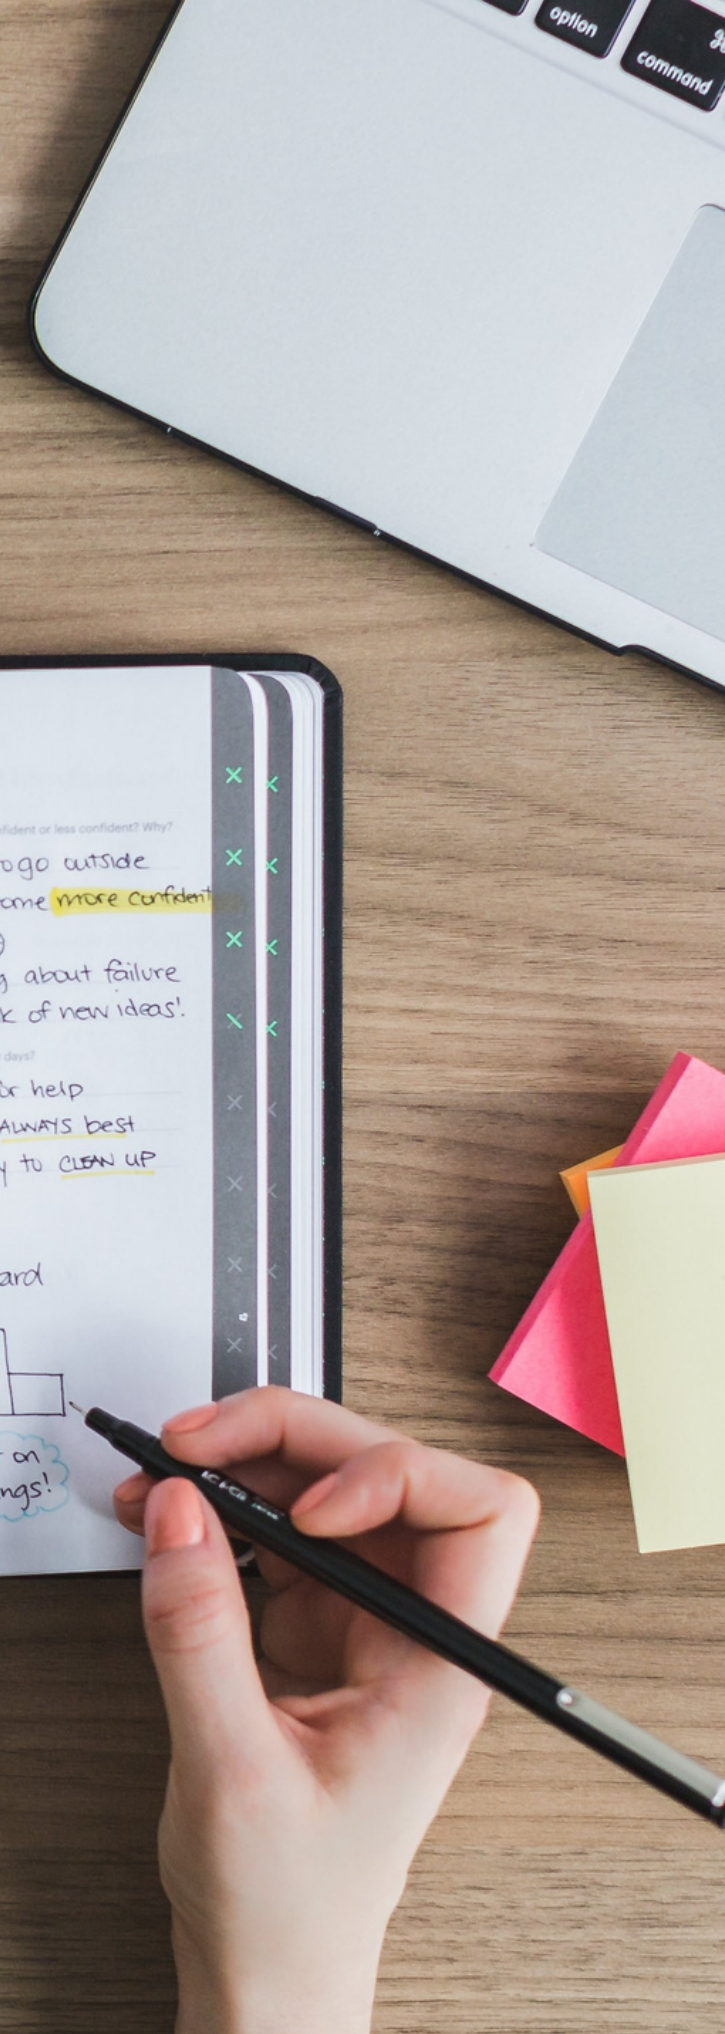 option
⌘
command
nfident or less confident? Why?
o go outside
ome more confident
g about failure
k of new ideas!
days?
or help
ALWAYS best
y to CLEAN UP
ard
on
ngs!